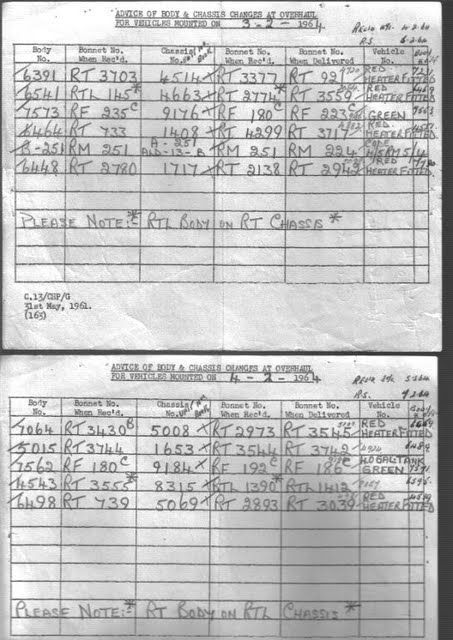 ADVICE OF BODY & CHASSIS CHANGES AT OVERHAUL
FOR VEHICLES MOUNTED ON 3-2-1964
R.S. 6-2-64
Body No. Bonnet No. When Rec'd. Chassis No. Bonnet No. When Rec'd. Bonnet No. When Delivered Vehicle No.
6391 RT 3703 4514 RT 3377 RT 921 RED HEATER FITTED
6541 RTL 145* 4663 RT 2774* RT 3559 HEATER FITTED
7573 RF 235C 9176 RF 180C RF 223C GREEN
6464 RT 733 1408 RT 4299 RT 3717 RED HEATER FITTED
B-251 RM 251 A-251 RM 251 RM 224
6448 RT 2780 1717 RT 2138 RT 2942 RED HEATER FITTED
PLEASE NOTE:- * RTL BODY ON RT CHASSIS *
C.13/CHP/G
31st May, 1961.
(163)
ADVICE OF BODY & CHASSIS CHANGES AT OVERHAUL
FOR VEHICLES MOUNTED ON 4-2-1964
R.S.
Body No. Bonnet No. When Rec'd. Chassis No. Bonnet No. When Rec'd. Bonnet No. When Delivered Vehicle No.
7064 RT 3430B 5008 RT 2973 RT 3545 RED HEATER FITTED
5015 RT 3744 1653 RT 3544 RT 3742
7562 RF 180C 9184 RF 192C RF 186C GREEN
4543 RT 3555* 8315 RTL 1390* RTL 1412
6498 RT 739 5069 RT 2893 RT 3039 RED HEATER FITTED
PLEASE NOTE:- * RT BODY ON RTL CHASSIS *